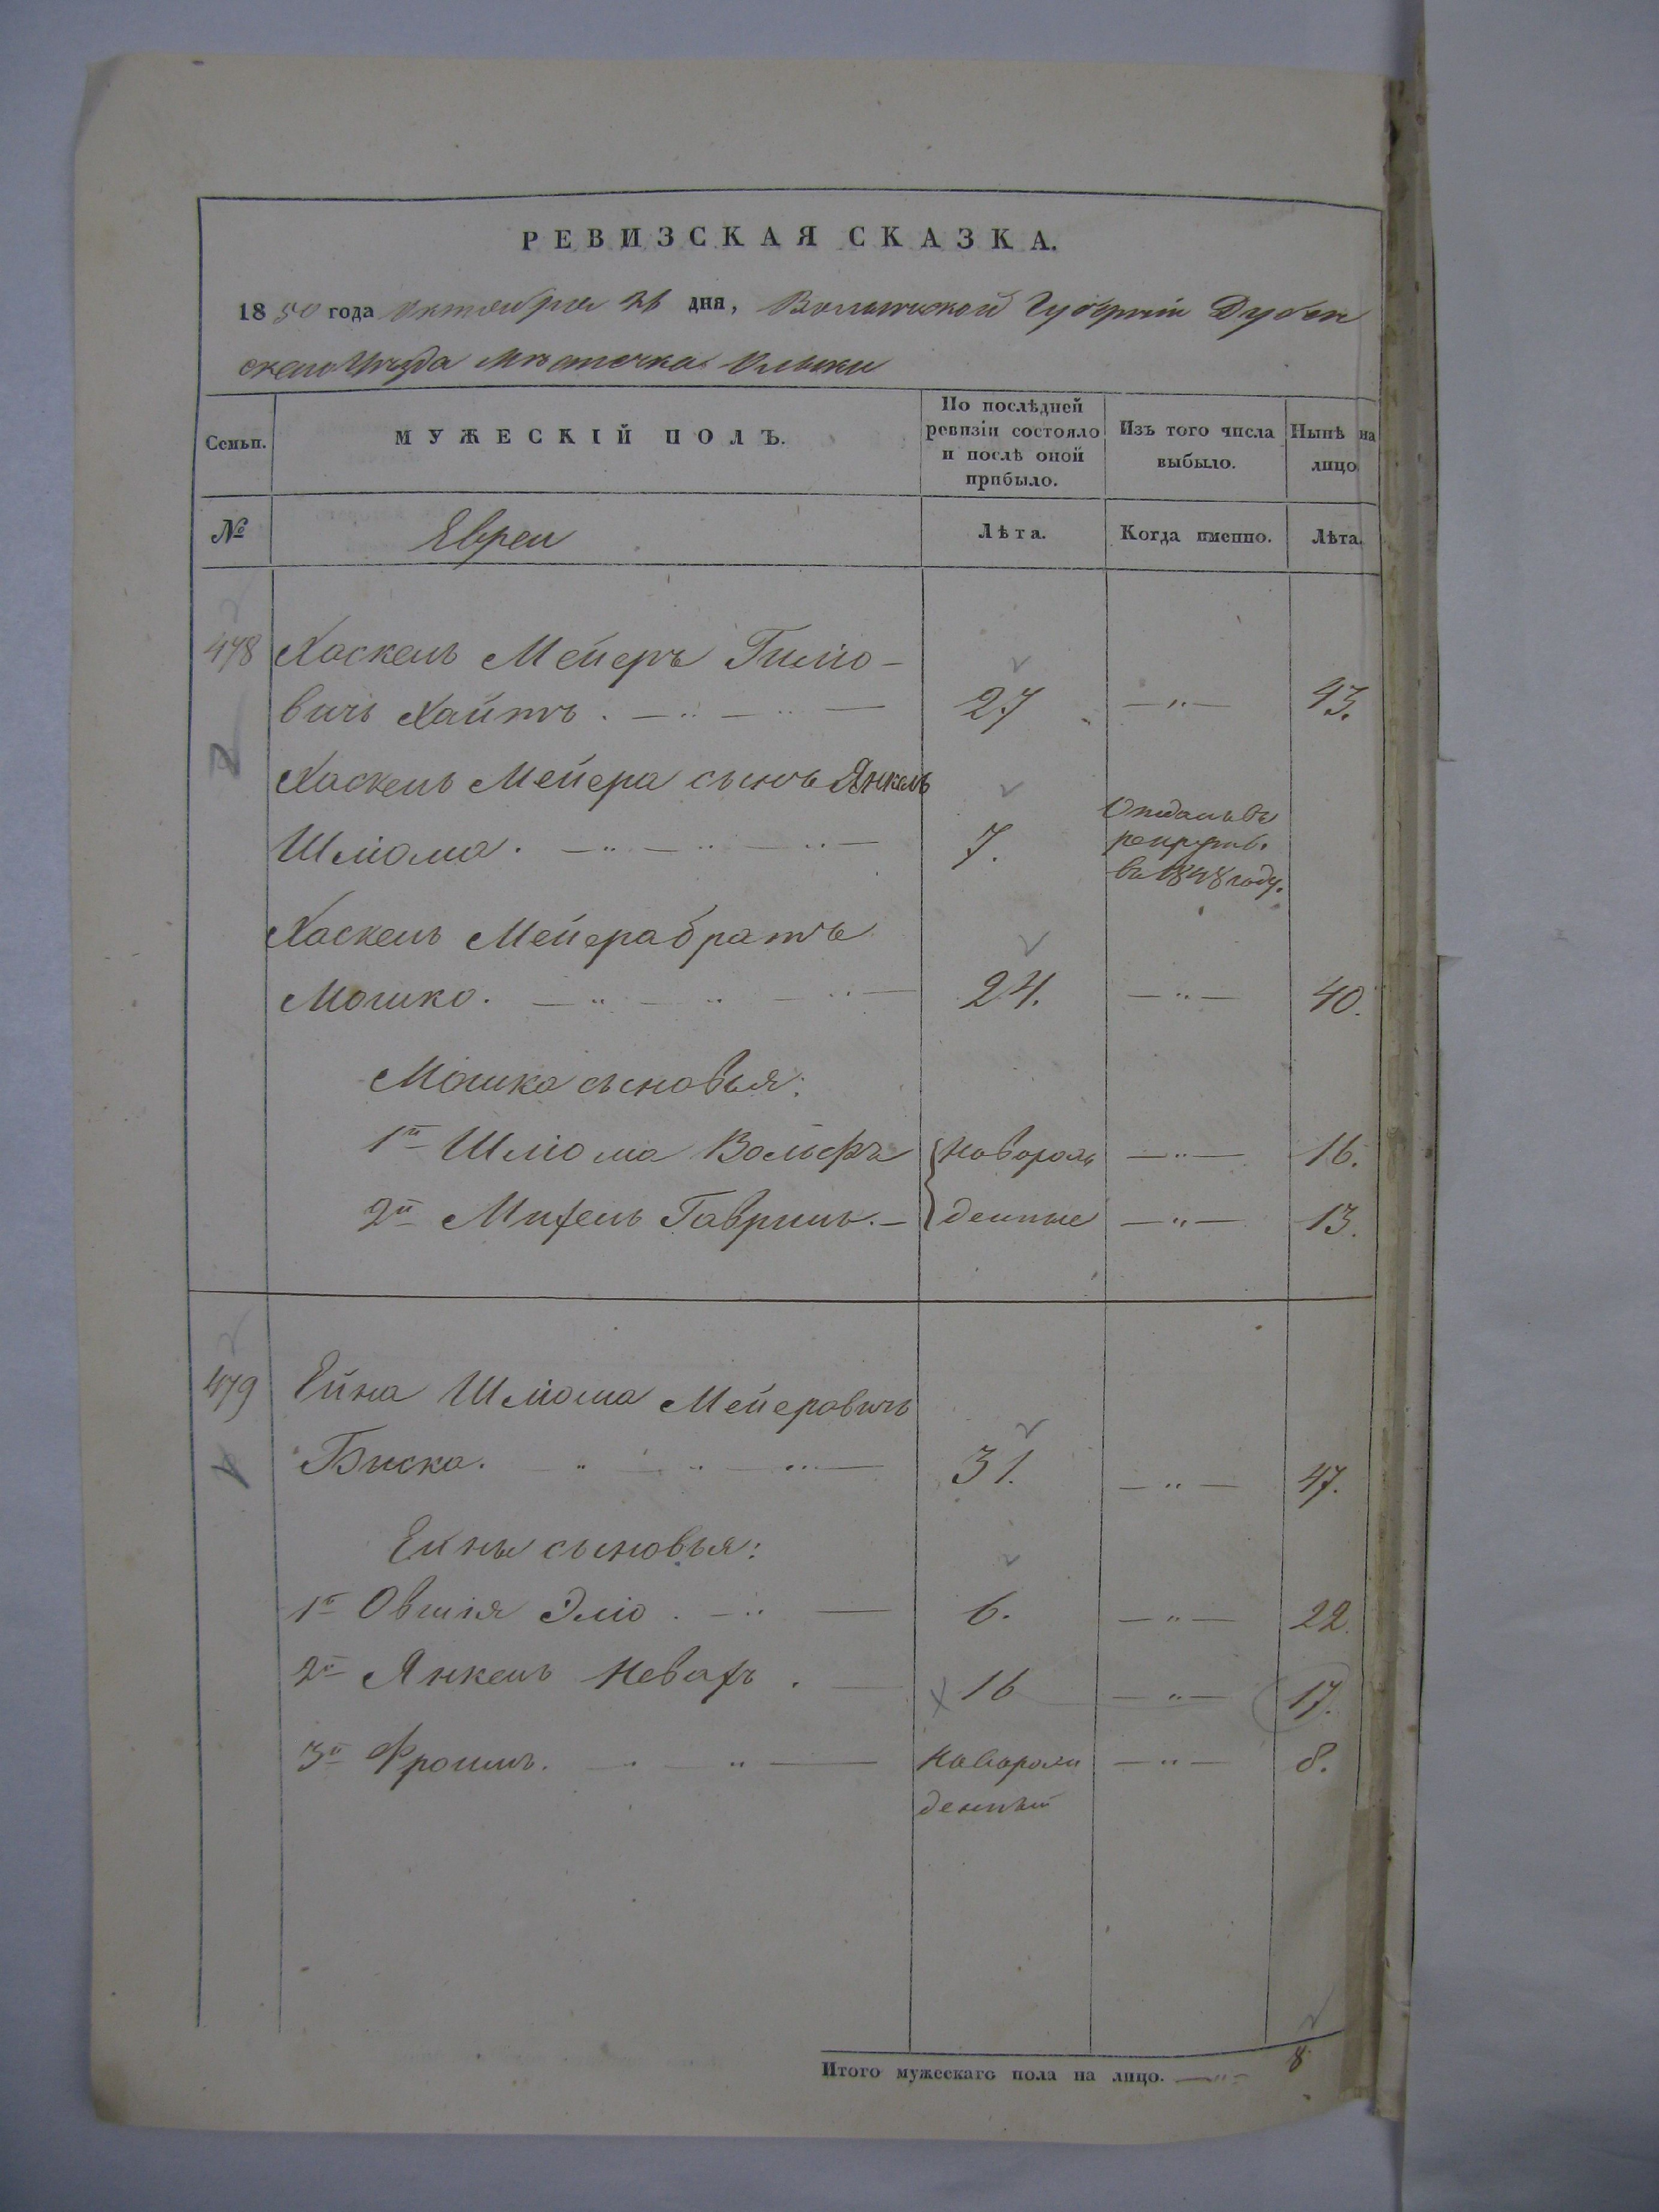 РЕВИЗСКАЯ СКАЗКА.
1850 года Октября 26 дня, Волынской Губерніи Дубен
скаго Уѣзда Мѣстечка Олыки
Семьи. МУЖЕСКІЙ ПОЛЪ. По послѣдней ревизіи состояло и послѣ оной прибыло. Изъ того числа выбыло. Нынѣ на лицо
№ Евреи Лѣта. Когда именно. Лѣта.
478 Хаскель Мейеръ
вичь Хайтъ. — " — " — 27 — " — 43.
Хаскель Мейера сынъ Янкель
Шліома. — " — " — " — 7. Отданъ въ рекруты. въ 1848 году.
Хаскель Мейера братъ
Мошко. — " — " — " — 24. — " — 40.
Мошка сыновья:
1й Шліома Вольфъ новорож — " — 16.
2й Михель Гавриль. — денные — " — 13.
479 Ейна Шліома Мейеровичь
Биска. — " — " — " — 31. — " — 47.
Ейны сыновья:
1й Овшія Эліо. — " — 6. — " — 22.
2й Янкель Невахъ. — 16 — " — 17.
3й Фроимъ. — " — " — Новорож — " — 8.
денный
Итого мужескаго пола на лицо. — " — 8